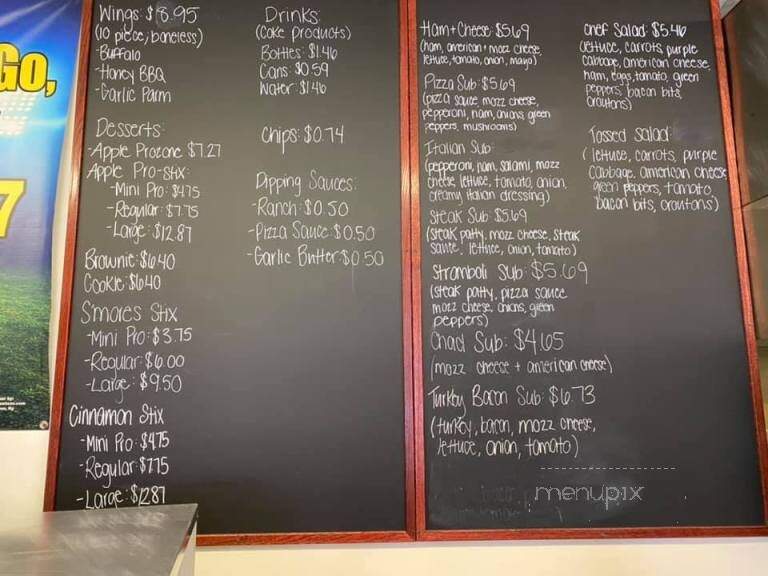 Go,
7
Wings: $8.95
(10 piece, boneless)
-Buffalo
-Honey BBQ
-Garlic Parm
Desserts:
-Apple Prozone $7.27
Apple Pro-Stix:
-Mini Pro: $4.75
-Regular: $7.75
-Large: $12.87
Brownie: $6.40
Cookie: $6.40
S'mores Stix
-Mini Pro: $3.75
-Regular: $6.00
-Large: $9.50
Cinnamon Stix
-Mini Pro: $4.75
-Regular: $7.75
-Large: $12.87
Drinks:
(Coke products)
Bottles: $1.46
Cans: $0.59
Water: $1.46
Chips: $0.74
Dipping Sauces:
-Ranch: $0.50
-Pizza Sauce: $0.50
-Garlic Butter: $0.50
Ham + Cheese: $5.69
(ham, american + mozz cheese,
lettuce, tomato, onion, mayo)
Pizza Sub: $5.69
(pizza sauce, mozz cheese,
pepperoni, ham, onions, green
peppers, mushrooms)
Italian Sub:
(pepperoni, ham, salami, mozz
cheese, lettuce, tomato, onion,
creamy italian dressing)
Steak Sub: $5.69
(steak patty, mozz cheese, steak
sauce, lettuce, onion, tomato)
Stromboli Sub: $5.69
(steak patty, pizza sauce
mozz cheese, onions, green
peppers)
Chad Sub: $4.65
(mozz cheese + american cheese)
Turkey Bacon Sub: $6.73
(turkey, bacon, mozz cheese,
lettuce, onion, tomato)
Chef Salad: $5.46
(lettuce, carrots, purple
cabbage, american cheese,
ham, eggs, tomato, green
peppers, bacon bits,
croutons)
Tossed Salad:
(lettuce, carrots, purple
cabbage, american cheese,
green peppers, tomato,
bacon bits, croutons)
menupix